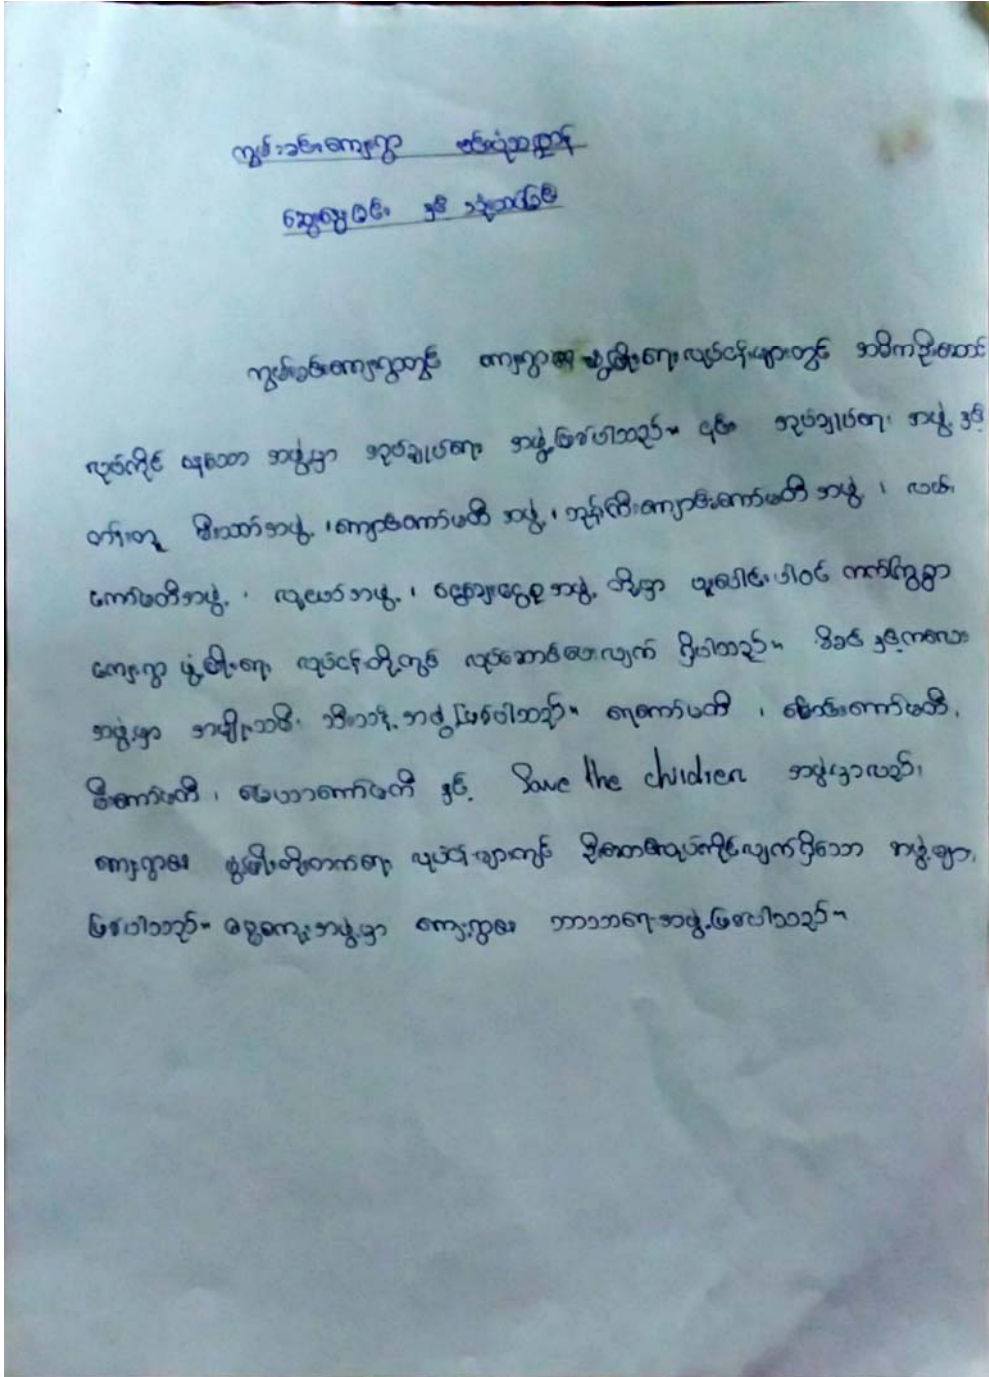 ကွမ်းခင်းကျေးရွာ ဗင်းပုံသဏ္ဌာန်
ဆွေးနွေးခြင်း နှင့် သုံးသပ်ခြင်း
ကွမ်းခင်းကျေးရွာတွင် ကျေးရွာ၏ ဖွံ့ဖြိုးရေးလုပ်ငန်းများတွင် အဓိကဦးဆောင်
လုပ်ကိုင် နေသော အဖွဲ့မှာ အုပ်ချုပ်ရေး အဖွဲ့ဖြစ်ပါသည်။ ၎င်း အုပ်ချုပ်ရေး အဖွဲ့နှင့်
တန်းတူ မီးသတ်အဖွဲ့၊ ကျောင်းကော်မတီ အဖွဲ့၊ ဘုန်းကြီးကျောင်းကော်မတီ အဖွဲ့၊ လမ်း
ကော်မတီအဖွဲ့၊ လူငယ်အဖွဲ့၊ ငွေချေးငွေစု အဖွဲ့ တို့မှာ ပူးပေါင်းပါဝင် ကက်ကြွစွာ
ကျေးရွာ ဖွံ့ဖြိုးရေး လုပ်ငန်းတို့တွင် လုပ်ဆောင်ပေးလျက် ရှိပါသည်။ မိခင်နှင့်ကလေး
အဖွဲ့မှာ အမျိုးသမီး သီးသန့် အဖွဲ့ဖြစ်ပါသည်။ ရေကော်မတီ၊ မြေယာကော်မတီ၊
မီးကော်မတီ၊ ကော်မတီ နှင့် Save the children အဖွဲ့မှာလည်း
ကျေးရွာ၏ ဖွံ့ဖြိုးတိုးတက်ရေး လုပ်ငန်းများတွင် ဦးဆောင်လုပ်ကိုင်လျက်ရှိသော အဖွဲ့များ
ဖြစ်ပါသည်။ အဖွဲ့မှာ ကျေးရွာ၏ ဘာသာရေးအဖွဲ့ဖြစ်ပါသည်။